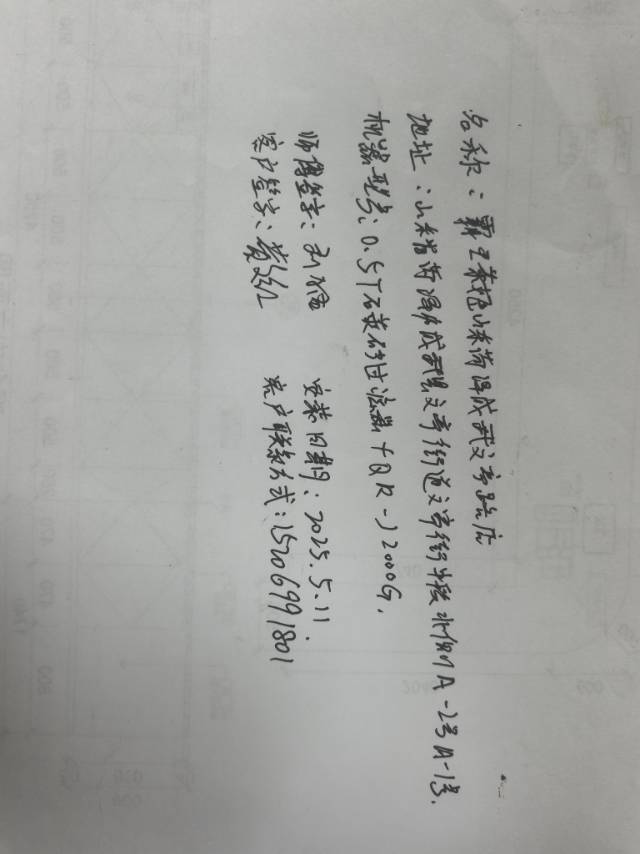 名称：霸王茶姬山东菏泽成武文亭路店
地址：山东省菏泽市成武县文亭街道文亭街中段北侧A-2号A-1号.
机器型号：0.5T石英砂过滤器+QR-J200G.
师傅签字：安装日期：2025.5.11.
客户签字：客户联系方式：15206991801